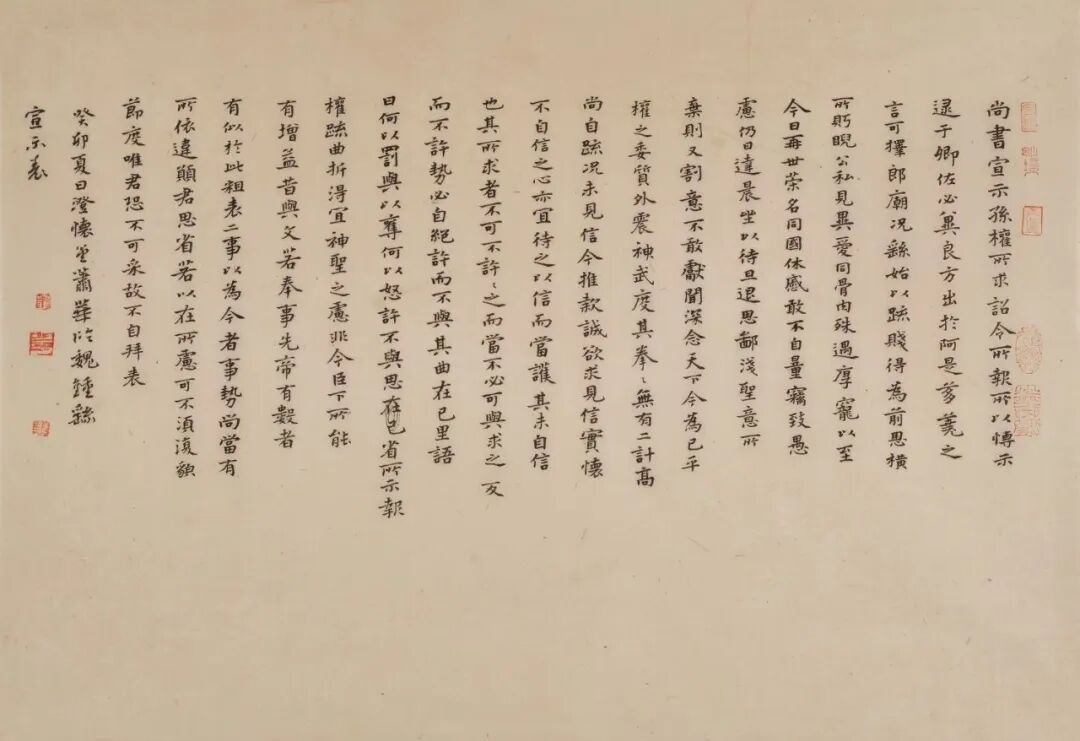 尚書宣示孫權所求詔令所報所以慱示
逮于卿佐必冀良方出於阿是芻蕘之
言可擇郎廟况繇始以疏賤得為前恩橫
所眄睨公私見異愛同骨肉殊遇厚寵以至
今日再世荣名同國休慼敢不自量竊致愚
慮仍日達晨坐以待旦退思鄙淺聖意所
棄則又割意不敢獻聞深念天下今為已平
權之委質外震神武度其拳〻無有二計高
尚自疏况未見信今推款誠欲求見信實懷
不自信之心亦宜待之以信而當護其未自信
也其所求者不可不許〻之而當不必可與求之 反
而不許勢必自絕許而不與其曲在已里語
曰何以罰與以奪何以怒許不與思在已省所示報
權疏曲折得宜神聖之慮非今臣下所能
有增益昔與文若奉事先帝有數者
有似於此粗表二事以為今者事勢尚當有
所依違願君思省若以在所慮可不須復䫉
節度唯君恐不可采故不自拜表
癸卯夏日澄懷堂蕭華臨魏鍾繇
宣示表